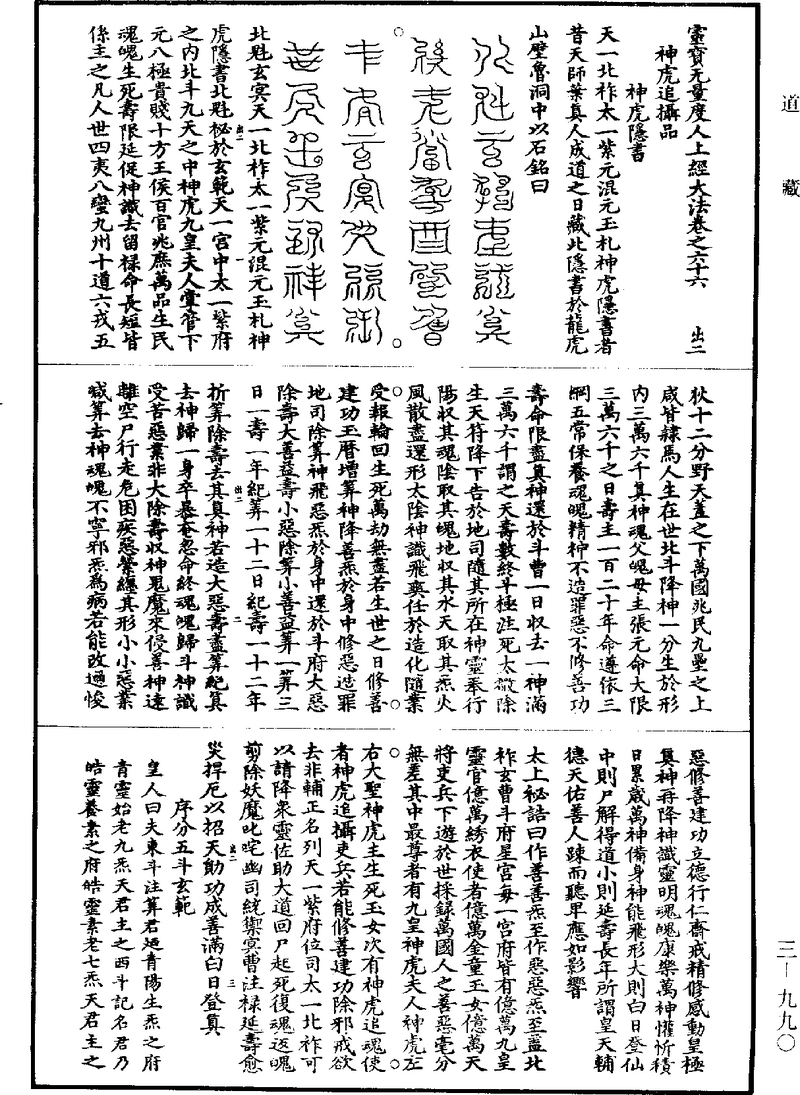 道藏
靈寶无量度人上經大法卷之六十六　出二
神虎追攝品
神虎隱書
天一北祚太一紫元混元玉札神虎隱書者
昔天師葉真人成道之日藏此隱書於龍虎
山壁魯洞中以石銘曰
北魁玄冥天一北祚太一紫元混元玉札神
虎隱書北魁祕於玄範天一宮中太一紫府
之內北斗九天之中神虎九皇夫人堂管下
元八極貴賤十方王侯百官兆庶萬品生民
魂魄生死壽限延促神識去留祿命長短皆
係主之凡人世四夷八蠻九州十道六戎五
狄十二分野天蓋之下萬國兆民九壘之上
咸皆隸焉人生在世北斗降神一分生於形
內三萬六千真神魂父魄母主張元命大限
三萬六千之日壽主一百二十年命遵依三
綱五常保養魂魄精神不造罪惡不修善功
壽命限盡真神還於斗曹一日收去一神滿
三萬六千謂之天壽數終斗極注死太微除
生天符降下告於地司隨其所在神靈奉行
陽收其魂陰取其魄地收其水天取其炁火
風散盡還形太陰神識飛爽任於造化隨業
受報輪回生死萬劫無盡若生世之日修善
建功玉曆增算神降善炁於身中修惡造罪
地司除算神飛惡炁於身中還於斗府大惡
除壽大善益壽小惡除算小善益算一算三
日一壽一年紀算一十二日紀壽一十二年
折算除壽去其真神若造大惡壽盡算絕真
去神歸一身卒暴奄忽命終魂魄歸斗神識
受苦惡業非大除壽收神鬼魔來侵善神遠
離空尸行走危困疾惡縈纏其形小小惡業
減算去神魂魄不寧邪炁為病若能改過悛
惡修善建功立德行仁齋戒精修感動皇極
真神再降神識靈明魂魄康樂萬神懽忻積
日累歲萬神備身神能飛形大則白日登仙
中則尸解得道小則延壽長年所謂皇天輔
德天佑善人踈而聽卑應如影響
太上祕誥曰作善善炁至作惡惡炁至蓋北
祚玄曹斗府星宮每一宮府皆有億萬九皇
靈官億萬綉衣使者億萬金童玉女億萬天
將吏兵下遊於世採録萬國人之善惡毫分
無差其中最尊者有九皇神虎夫人神虎左
右大聖神虎主生死玉女次有神虎追魂使
者神虎追攝吏兵若能修善建功除邪戒欲
去非輔正名列天一紫府位司太一北祚可
以請降衆靈佐助大道回尸起死復魂返魄
剪除妖魔叱咤幽司統禦冥曹注祿延壽愈
災捍厄以招天勛功成善滿白日登真
序分五斗玄範
皇人曰夫東斗注算君廼青陽生炁之府
青靈始老九炁天君主之西斗記名君乃
皓靈養素之府皓靈素老七炁天君主之
三－九九〇